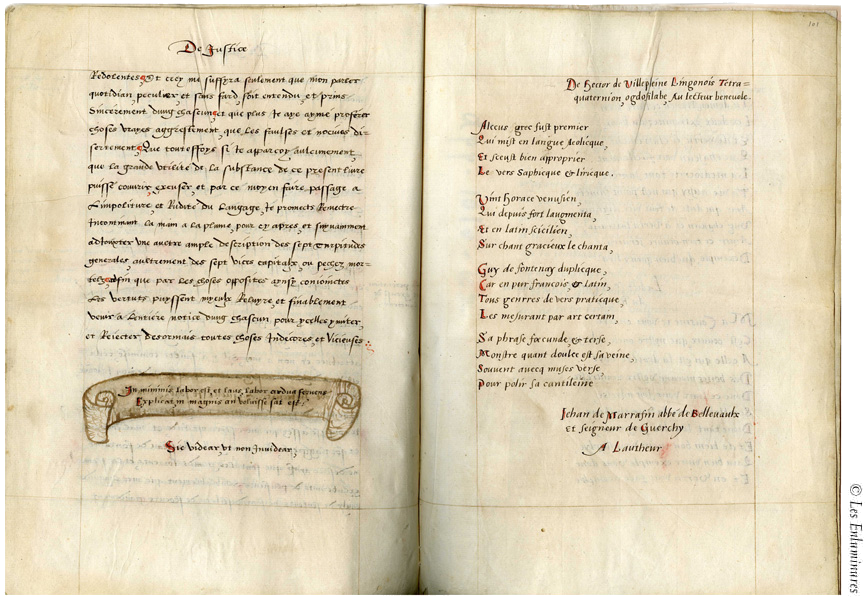 De Justice
Redolentes, Et cecy me suffyra seulement que mon parler
quotidian, peculier, et sans fard, soit entendu, et prins
Sincerement dung chascun, et que plus Je aye aymé proferer
choses vrayes aggrestement, que les faulses et nocives di-
sertement, Que touteffoys si Je apparcoy aulcunement
que la grande utilité de la substance de ce present livre
puisse couvrir, excuser, et par ce moyen faire passage a
Limpoliture, et Rudité du Langage, Je promects Remectre
Incontinant la main a la plume, pour cy apres, et suyvamment
adjouxter une aultre ample description des sept Turpitudes
generales, aultrement des sept vices capitaulx, ou pechez mor-
telz, adfin que par les choses opposites aynsi conjoinctes
Les vertuts puyssent myeulx Reluyre, et finablement
venir a Lentiere notice dung chascun, pour ycelles ymiter,
et Rejecter desormais toutes choses Indecores, et Vicieuses.
In minimis labor est, et laus, labor ardua fervens
Explicat, in magnis on voluisse sat est.
Sic videar, ut non Invidear,
101
De hector de Villepleine Lingonois Tetra=
quaternion, ogdosilabe, Au lecteur benevole.
Alceus grec fust premier
Qui mist en langue Aeolicque,
Et sceust bien approprier
Le vers Saphicque & liricque.
Vint Horace venusien,
Qui depuis fort laugmenta,
Et en latin scicilien,
Sur chant gracieux le chanta,
Guy de fontenay duplicque,
Car en pur francois & latin,
Tous genrres de vers praticque,
Les mesurant par art certain,
Sa phrase foecunde & terse,
Monstre quant doulce est sa veine,
Souvent avecq muses verse,
Pour polir sa cantileine
Jehan de Marrasin abbé de Bellevaulx
Et seigneur de Guerchy
A Lautheur
© Les Enluminures